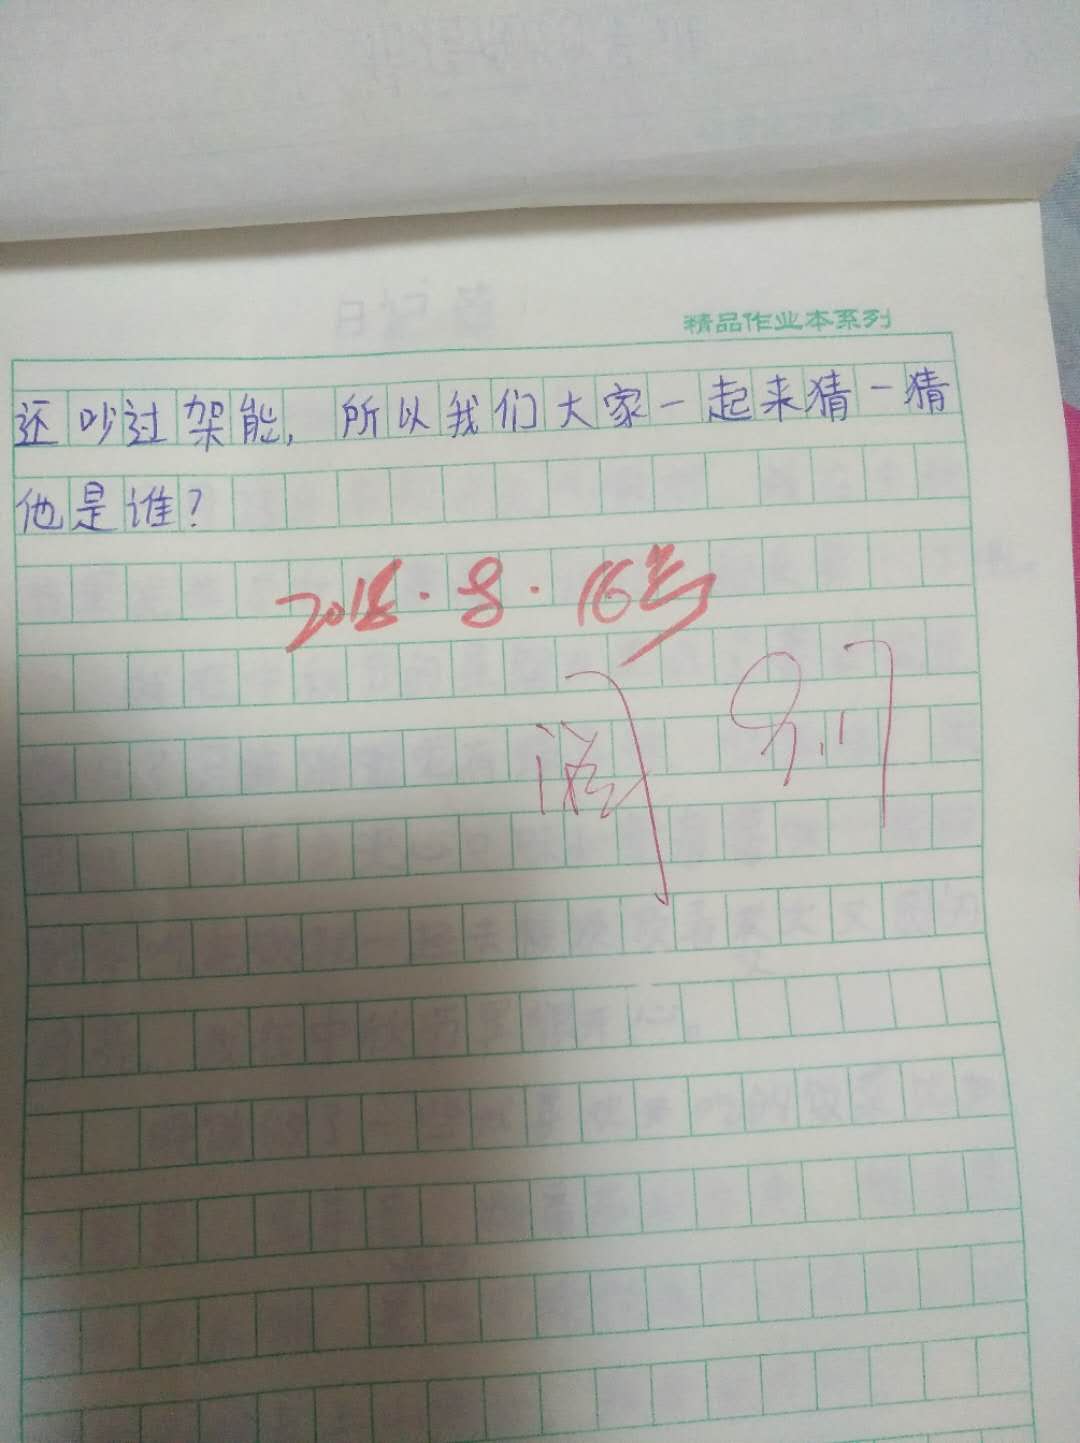 精品作业本系列
还吵过架能，所以我们大家一起来猜一猜
他是谁？
2018.8.16号